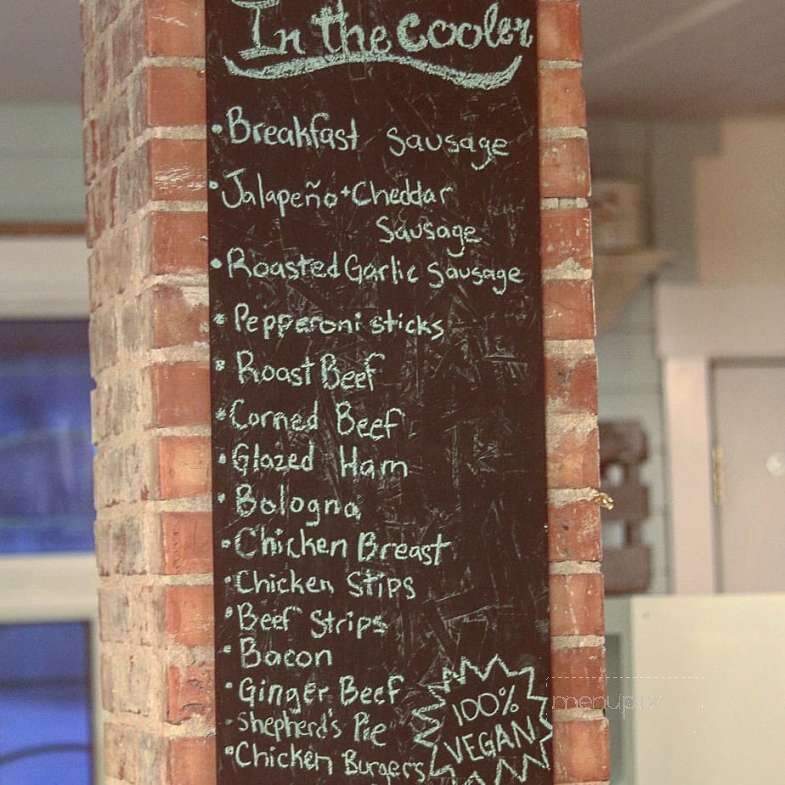 In the cooler
• Breakfast Sausage
• Jalapeño + Cheddar
Sausage
• Roasted Garlic Sausage
• Pepperoni sticks
• Roast Beef
• Corned Beef
• Glazed Ham
• Bologna
• Chicken Breast
• Chicken Stips
• Beef Strips
• Bacon
• Ginger Beef
• Shepherd's Pie
• Chicken Burgers
100%
VEGAN